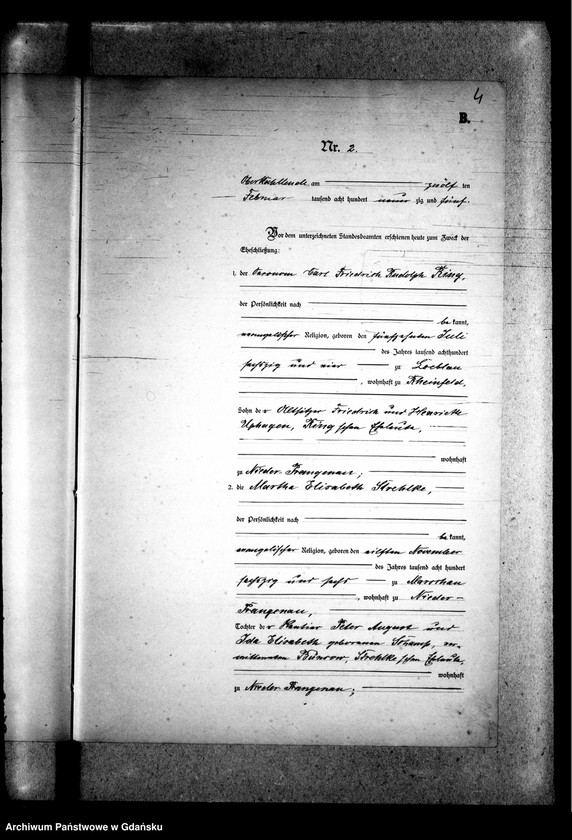 4
B.
Nr. 2.
am zwölf ten
Februar tausend acht hundert neun zig und fünf.
Vor dem unterzeichneten Standesbeamten erschienen heute zum Zweck der
Eheschließung:
1. der Oeconom Carl Friedrich Rudolph King,
der Persönlichkeit nach
be kannt,
evangelischer Religion, geboren den fünfzehnten Juli
des Jahres tausend achthundert
sechszig und vier zu Loeblau
, wohnhaft zu Rheinfeld,
Sohn der Altsitzer Friedrich und Henriette
King'schen Eheleute,
wohnhaft
zu Nieder Prangenau;
2. die Martha Elisabeth Strehlke,
der Persönlichkeit nach
be kannt,
evangelischer Religion, geboren den eilften November
des Jahres tausend acht hundert
sechszig und sechs zu Marschau
, wohnhaft zu Nieder-
Prangenau,
Tochter der Rentier Peter August und
Ida Elisabeth geborenen
Strehlke'schen Eheleute,
wohnhaft
zu Nieder Prangenau;
Archiwum Państwowe w Gdańsku